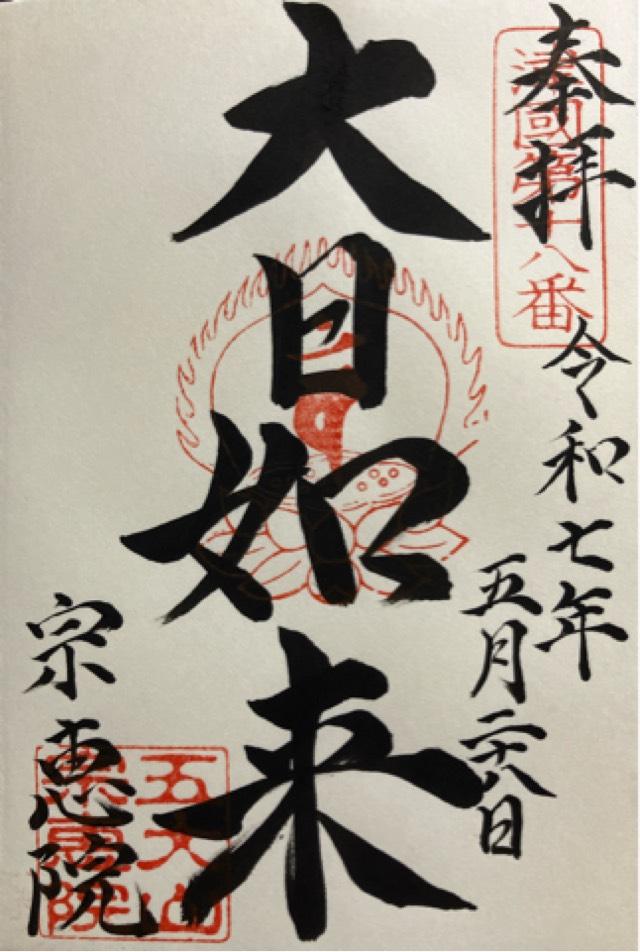 奉拝
津國第十八番
令和七年
五月二十八日
大日如来
五大山
宗恵院